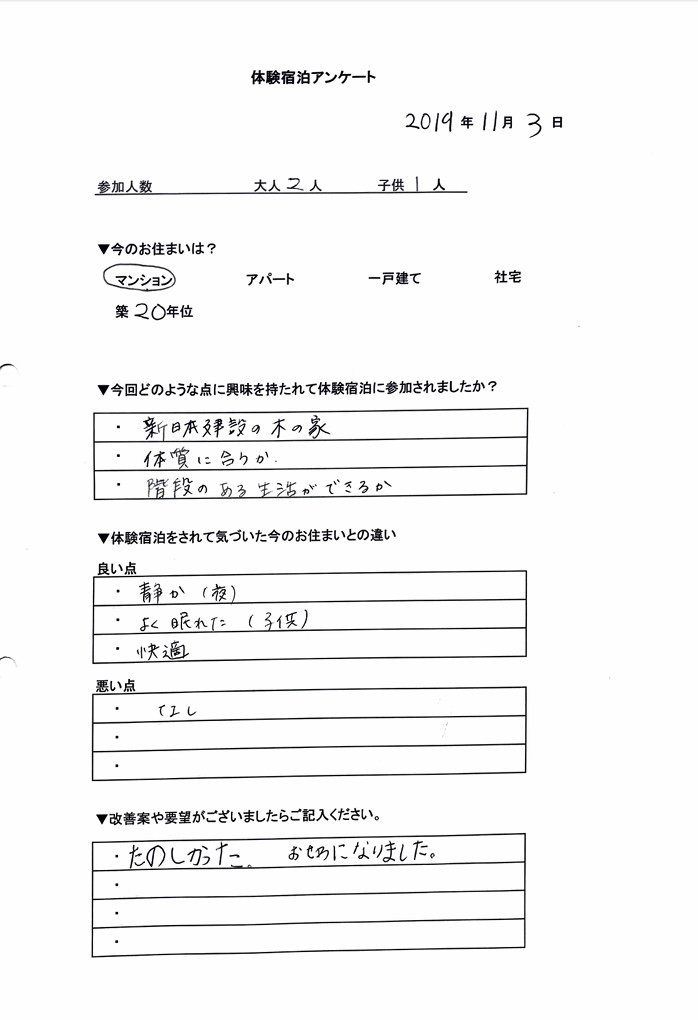 体験宿泊アンケート
2019年11月3日
参加人数 大人2人 子供1人
▼今のお住まいは？
マンション アパート 一戸建て 社宅
築20年位
▼今回どのような点に興味を持たれて体験宿泊に参加されましたか？
・新日本建設の木の家
・体質に合うか.
・階段のある生活ができるか
▼体験宿泊をされて気づいた今のお住まいとの違い
良い点
・静か（夜）
・よく眠れた（子供）
・快適
悪い点
・なし
・
・
▼改善案や要望がございましたらご記入ください。
・たのしかった。 おせわになりました。
・
・
・